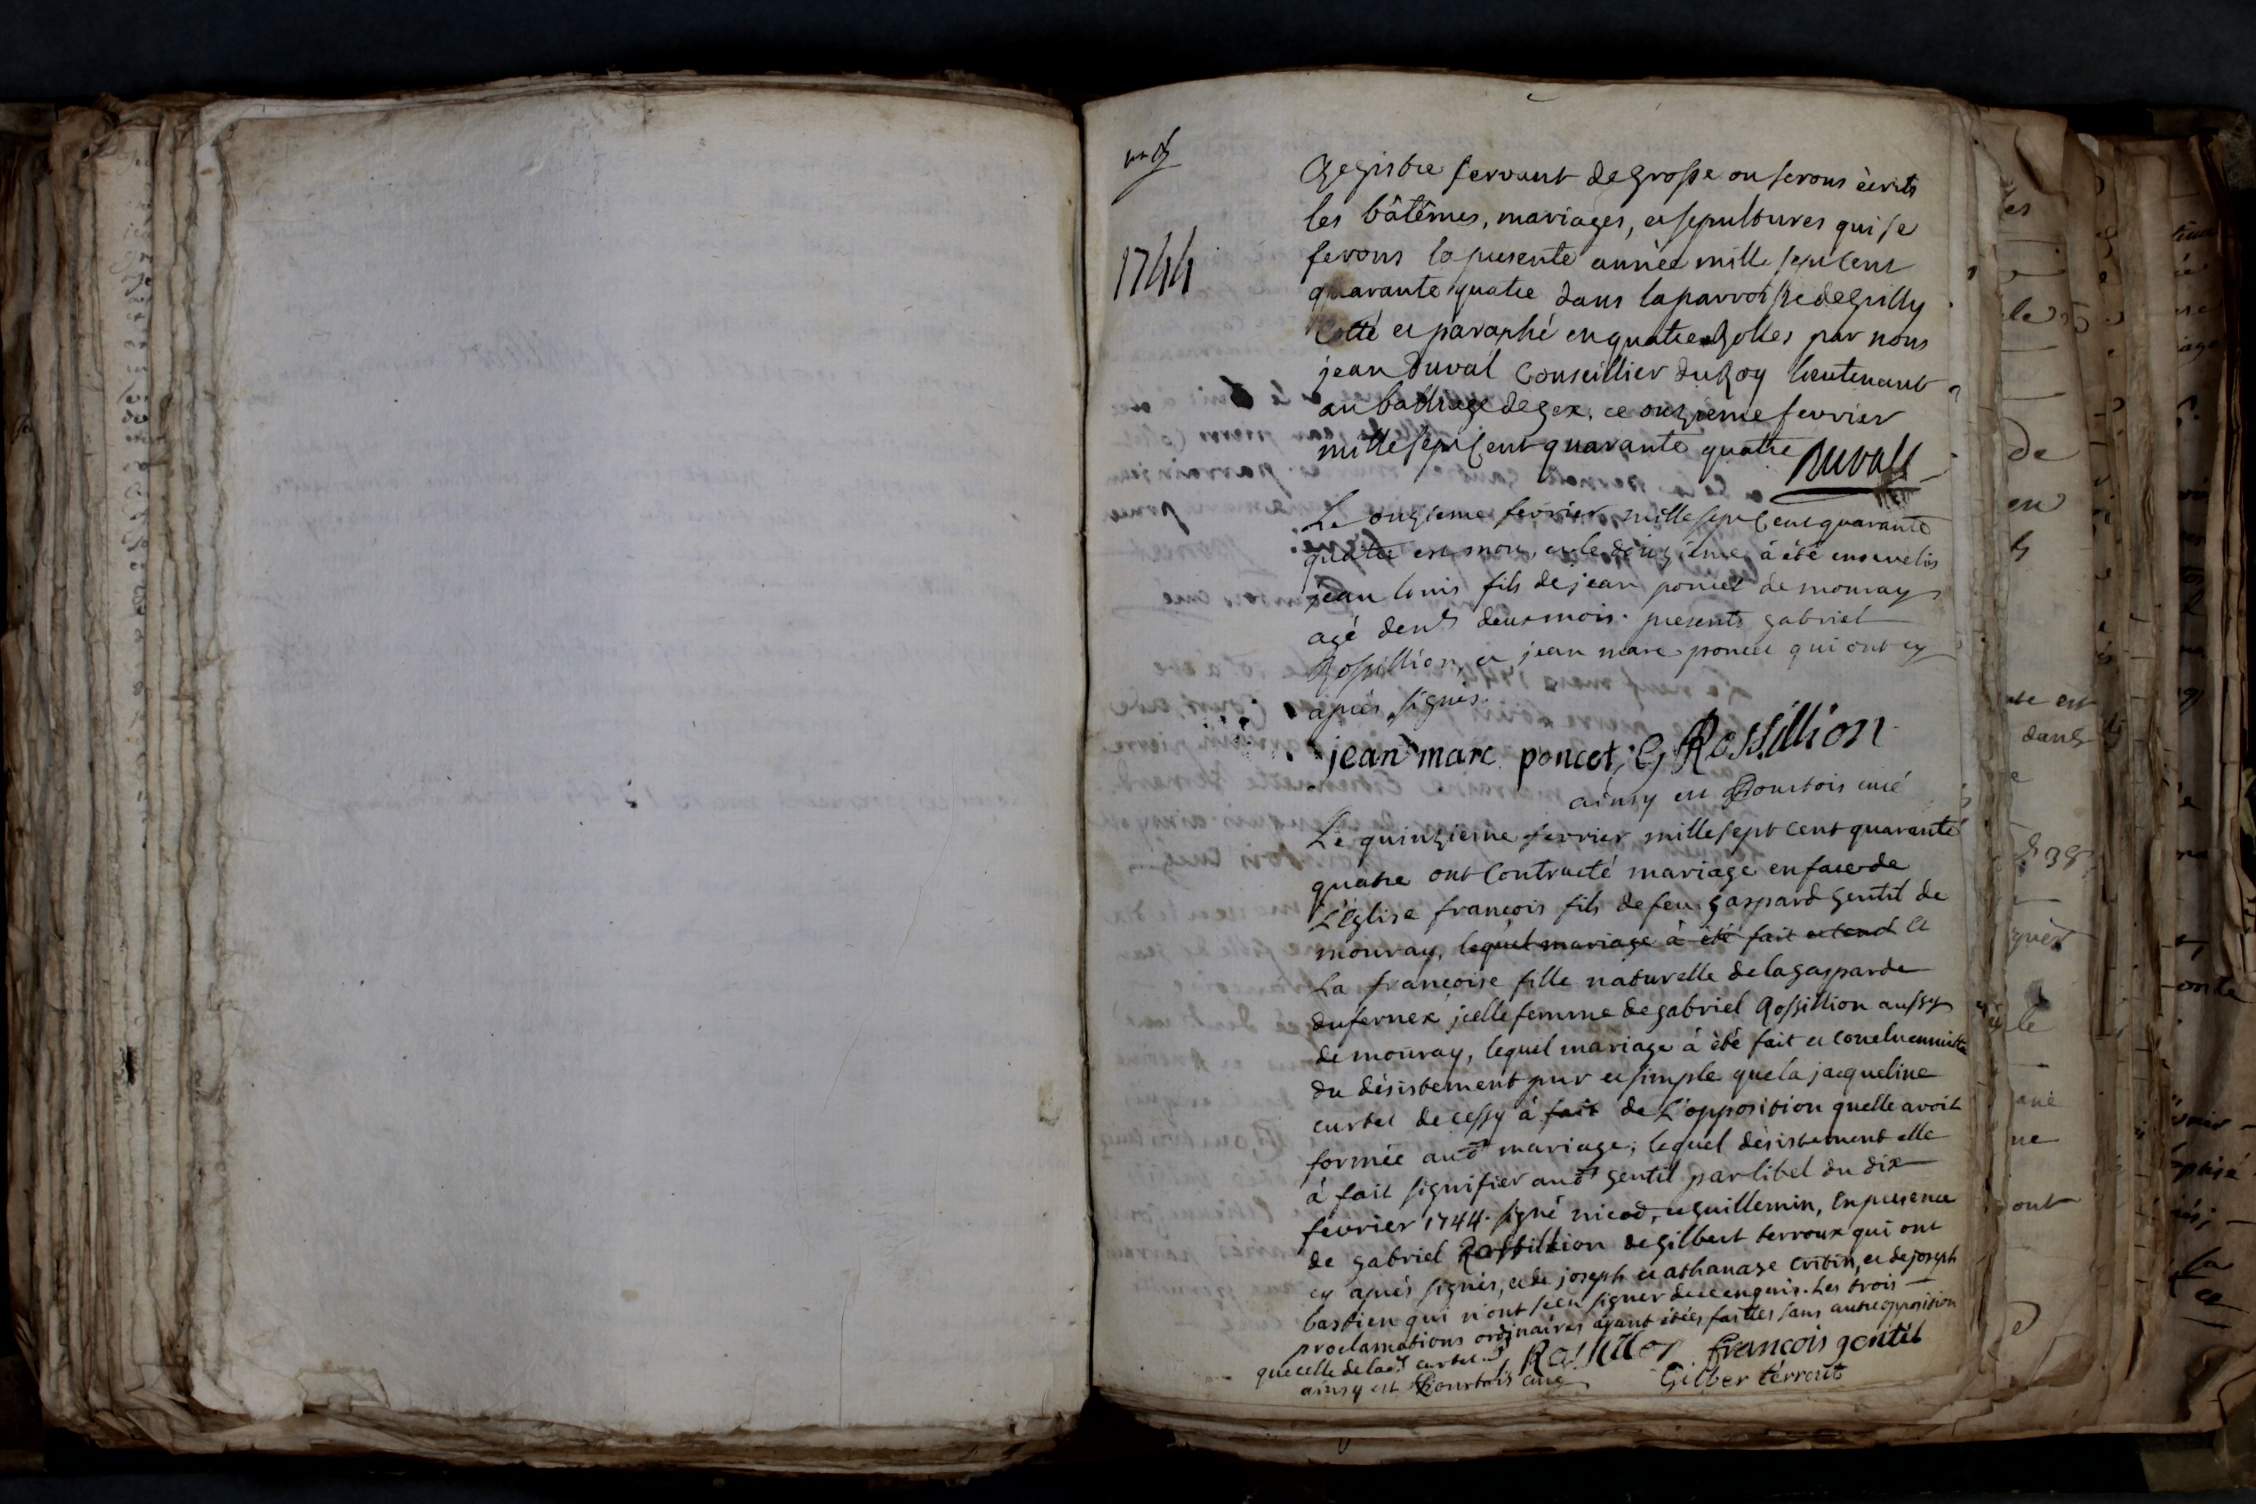 1744
Registre servant de grosse ou serons écrits
les bâtêmes, mariages, et sepultures qui se
ferons la presente année mille sept cent
quarante quatre dans la parroisse de grilly
Cotté et paraphé en quatre Rolles par nous
jean Duval Conseillier du Roy lieutenant
au bailliage de gex, ce onzieme fevrier
mille sept Cent quarante quatre Duval
Le onzieme fevrier mille sept Cent quarante
quatre est mort, et le douzième à été ensevelis
jean louis fils de jean poncet de mouray
agé denv deux mois. presents gabriel
Rossillion, et jean marc poncet qui ont cy
après signes.
jean marc poncet; G Rossillion
ainsy est Bourtois curé
Le quinzieme fevrier mille sept cent quarante
quatre ont Contracté mariage en face de
L'Eglise françois fils de feu gaspard gentil de
mouray, lequel mariage à été fait et
La françoise fille naturelle de la gasparde
dufernex jcelle femme de gabriel Rossillion aussy
de mouray, lequel mariage à été fait et conclu ensuitte
du désistement pur et simple que la jacqueline
curtet de cessy à fait de L'opposition quelle avoit
formée aud mariage; lequel désistement elle
à fait signifier aud gentil par libel du dix
fevrier 1744. signé nicod, et guillemin, En presence
de gabriel Rossillion de gilbert terroux qui ont
cy après signés, et de joseph et athanaze Critin, et de joseph
bastien qui n'ont sceu signer de ce enquis. Les trois
proclamations ordinaires ayant étées faittes sans autre opposition
que celle de lad curtet
Rossillion françois gentil
ainsy est Bourtois curé Gilber térrout